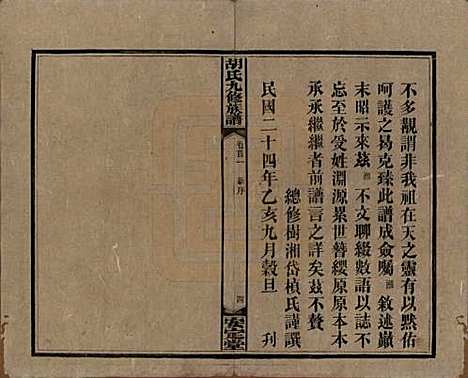 不多覯謂非我祖在天之靈有以默佑
呵護之曷克臻此譜成僉囑湘敘述巔
末昭示來茲湘不文聊綴數語以誌不
忘至於受姓淵源累世簪纓原原本本
承承繼繼者前譜言之詳矣茲不贅
總修樹湘岱楨氏謹譔
民國二十四年乙亥九月穀旦 刊
胡氏九修族譜
卷首一 序
四
安定堂